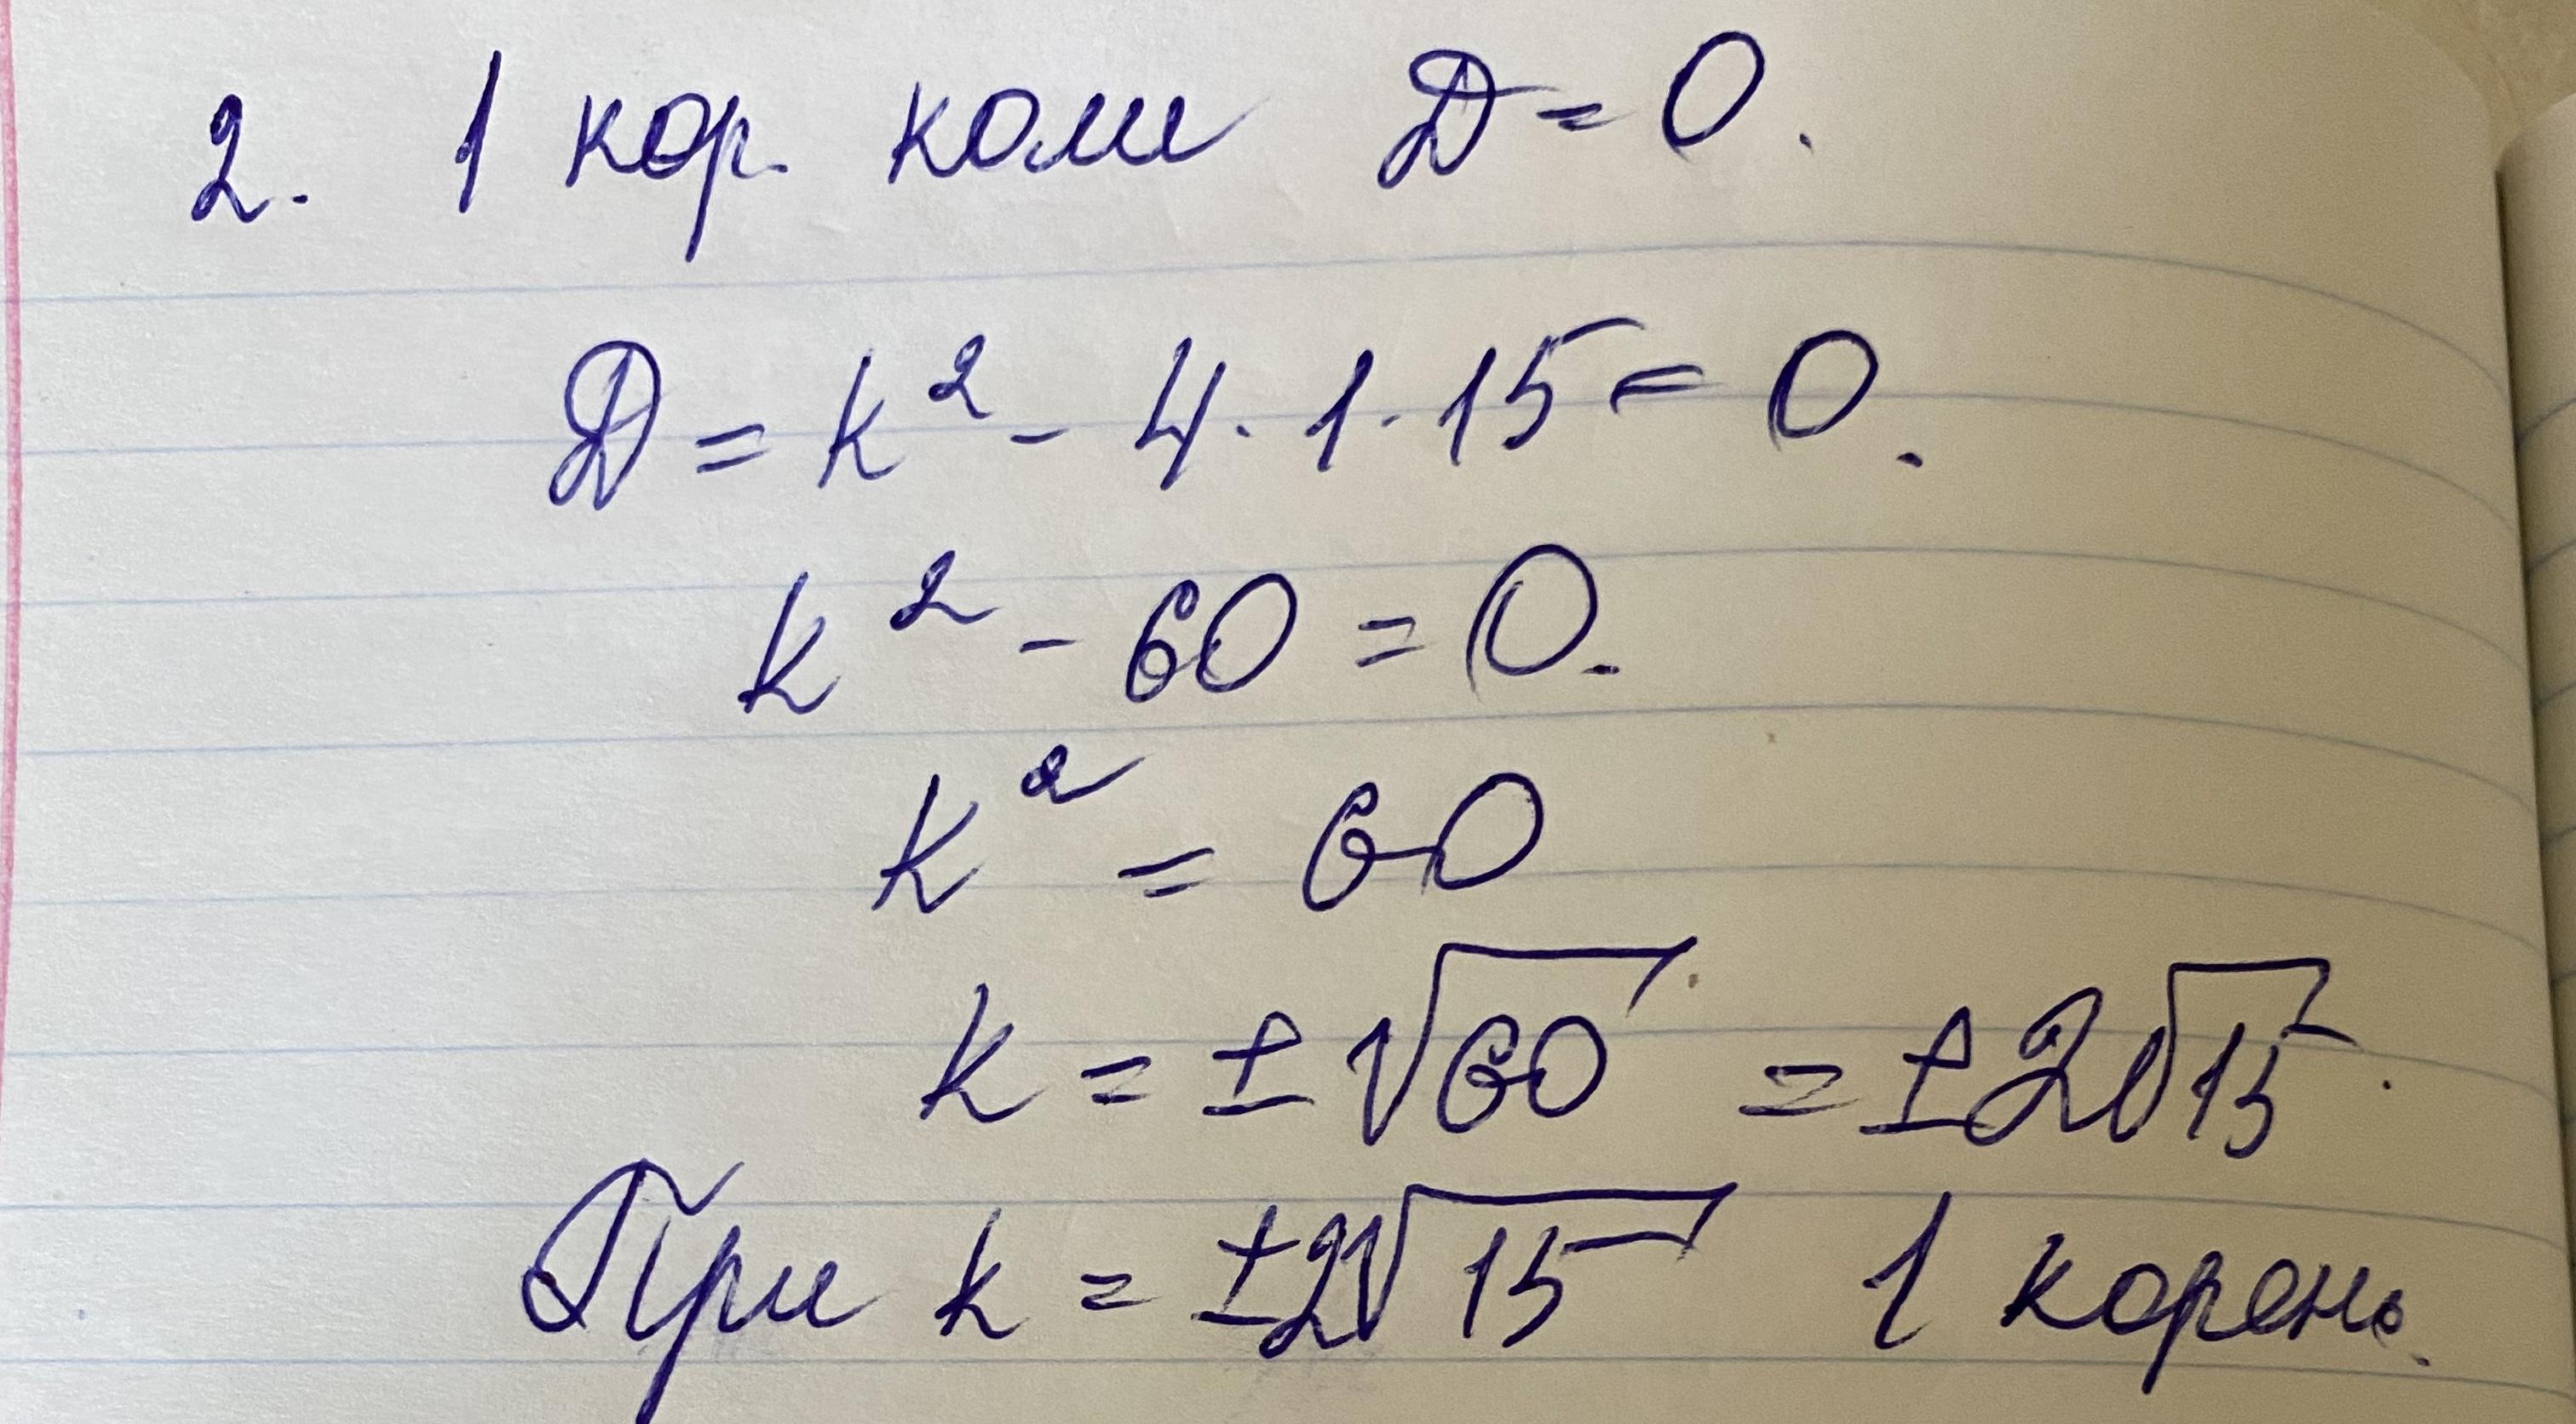 2. 1 кор. коли D = 0.
D = k² - 4 · 1 · 15 = 0.
k² - 60 = 0.
k² = 60
k = ±√60 = ±2√15.
При k = ±2√15 1 корень.